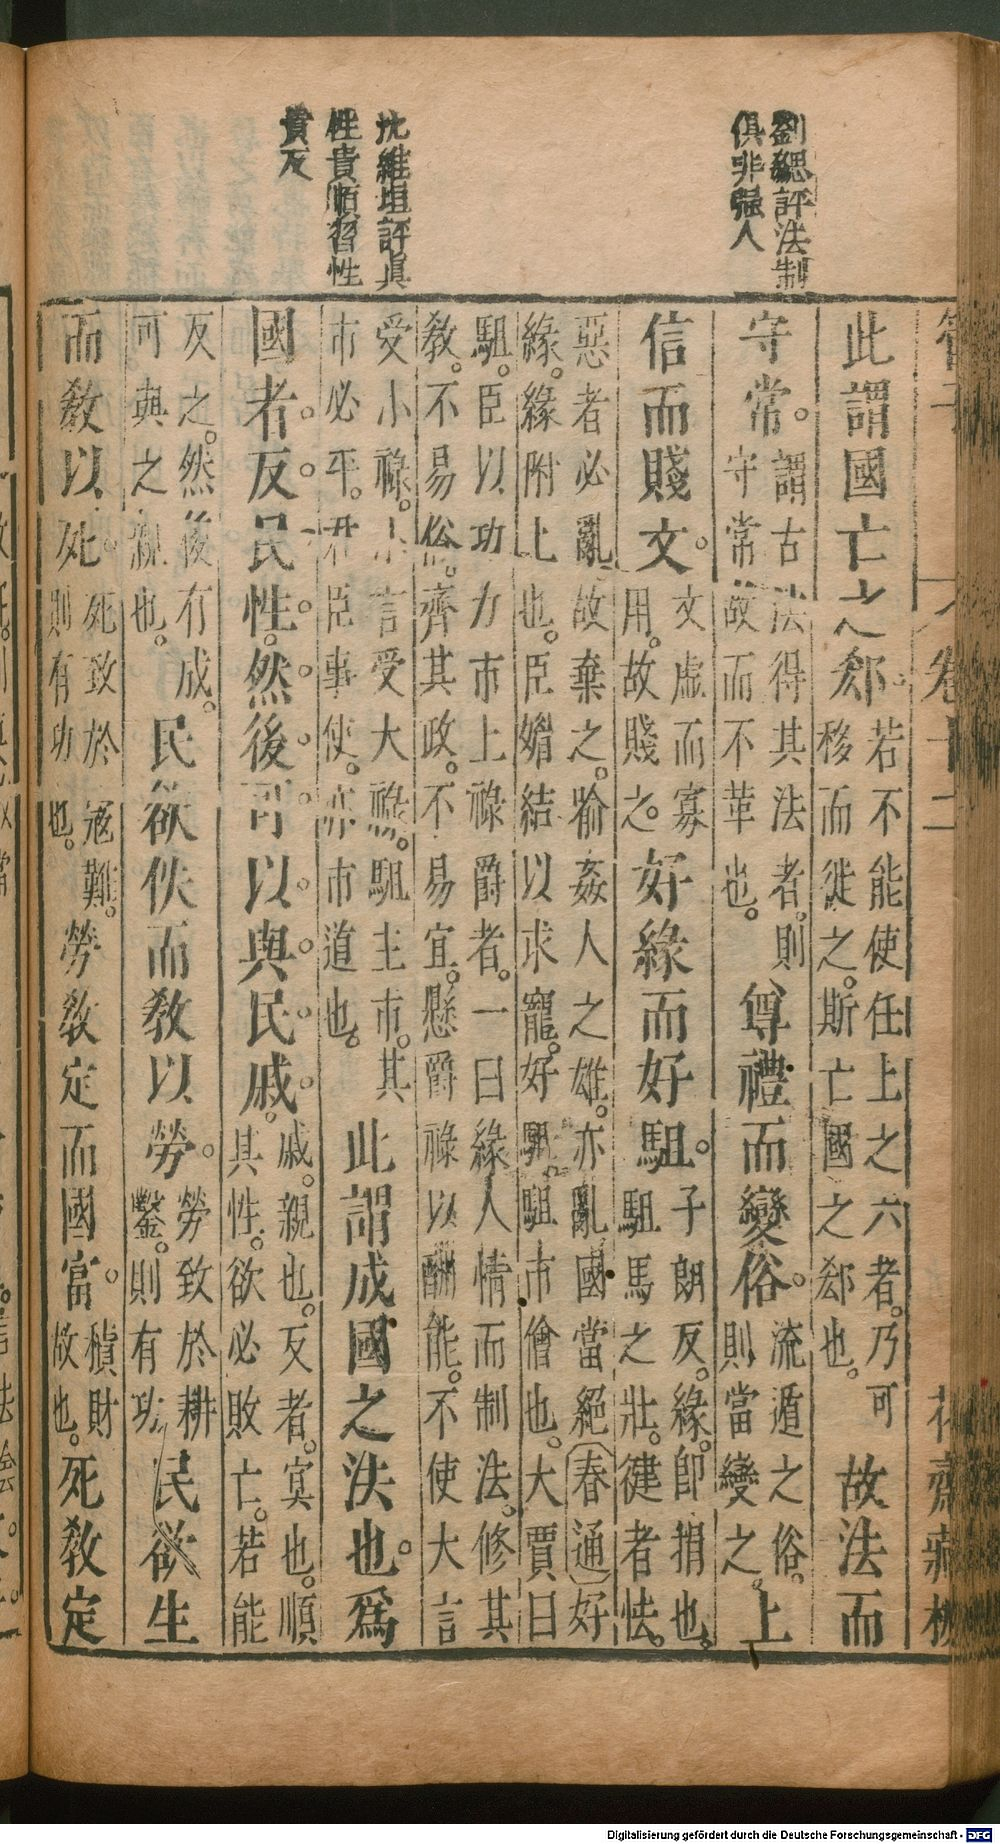 劉勰評法制
俱非強人
沈維垣評眞
性貴順習性
貴反
管子
卷十二
花齋藏板
此謂國亡之郄。若不能使任上之六者。乃可移而徙之。斯亡國之郄也。故法而
守常。謂古法得其法者。則守常故而不革也。尊禮而變俗。流遁之俗。則當變之。上
信而賤文。文虛而寡用。故賤之。好緣而好駔。子朗反。緣。卽捐也。駔馬之壯。健者怯。
惡者必亂故棄之。喻姦人之雄。亦亂國當絕春通好
緣。緣附上也。臣媚結以求寵。好駔駔市儈也。大賈曰
駔。臣以功力市上祿爵者。一曰緣人情而制法。修其
敎。不易俗。齊其政。不易宜。懸爵祿以酬能。不使大言
受小祿。小言受大祿。駔主市。其市必平。君臣事使。亦市道也。此謂成國之法也。爲
國者。反民性。然後可以與民戚。戚。親也。反者。寞也。順其性。欲必敗亡。若能
反之。然後有成。可與之親也。民欲佚而敎以勞。勞致於耕鑿。則有功民欲生
而敎以死。死致於寇難。則有功也。勞敎定而國富。積財故也。死敎定
Digitalisierung gefördert durch die Deutsche Forschungsgemeinschaft - DFG